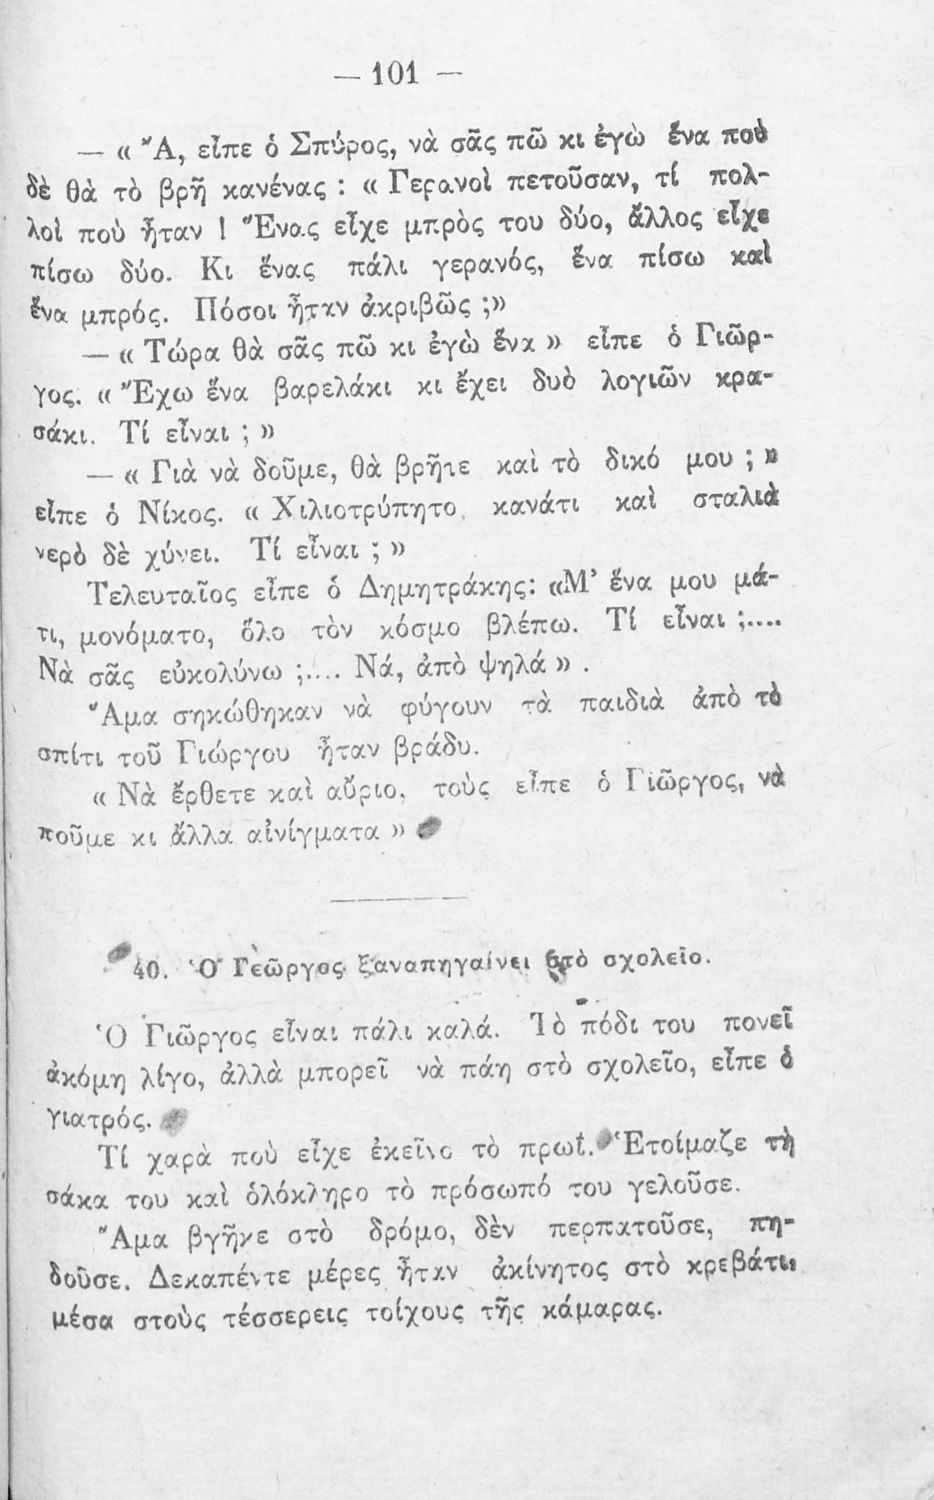 — 101 —
— « Ἄ, εἶπε ὁ Σπύρος, νὰ σᾶς πῶ κι ἐγὼ ἕνα ποὺ
δὲ θὰ τὸ βρῇ κανένας : « Γερανοὶ πετοῦσαν, τί πολ-
λοὶ ποὺ ἦταν ! Ἕνας εἶχε μπρὸς του δύο, ἄλλος εἶχε
πίσω δύο. Κι ἕνας πάλι γερανός, ἕνα πίσω καὶ
ἕνα μπρός. Πόσοι ἦταν ἀκριβῶς ;»
— « Τώρα θὰ σᾶς πῶ κι ἐγὼ ἕνα » εἶπε ὁ Γιῶρ-
γος. « Ἔχω ἕνα βαρελάκι κι ἔχει δυὸ λογιῶν κρα-
σάκι. Τί εἶναι ; »
— « Γιὰ νὰ δοῦμε, θὰ βρῆτε καὶ τὸ δικό μου ; »
εἶπε ὁ Νίκος. « Χιλιοτρύπητο κανάτι καὶ σταλιὰ
νερὸ δὲ χύνει. Τί εἶναι ; »
Τελευταῖος εἶπε ὁ Δημητράκης: «Μ᾿ ἕνα μου μά-
τι, μονόματο, ὅλο τὸν κόσμο βλέπω. Τί εἶναι ;....
Νὰ σᾶς εὐκολύνω ;.... Νά, ἀπὸ ψηλά » .
Ἅμα σηκώθηκαν νὰ φύγουν τὰ παιδιὰ ἀπὸ τὸ
σπίτι τοῦ Γιώργου ἦταν βράδυ.
« Νὰ ἔρθετε καὶ αὔριο, τοὺς εἶπε ὁ Γιῶργος, νὰ
ποῦμε κι ἄλλα αἰνίγματα »
40. Ὁ Γεῶργος ξαναπηγαίνει στὸ σχολεῖο.
Ὁ Γιῶργος εἶναι πάλι καλά. Τὸ πόδι του πονεῖ
ἀκόμη λίγο, ἀλλὰ μπορεῖ νὰ πάῃ στὸ σχολεῖο, εἶπε ὁ
γιατρός.
Τί χαρὰ ποὺ εἶχε ἐκεῖνο τὸ πρωί. Ἑτοίμαζε τὴ
σάκα του καὶ ὁλόκληρο τὸ πρόσωπό του γελοῦσε.
Ἅμα βγῆκε στὸ δρόμο, δὲν περπατοῦσε, πη-
δοῦσε. Δεκαπέντε μέρες ἦταν ἀκίνητος στὸ κρεβάτι,
μέσα στοὺς τέσσερεις τοίχους τῆς κάμαρας.